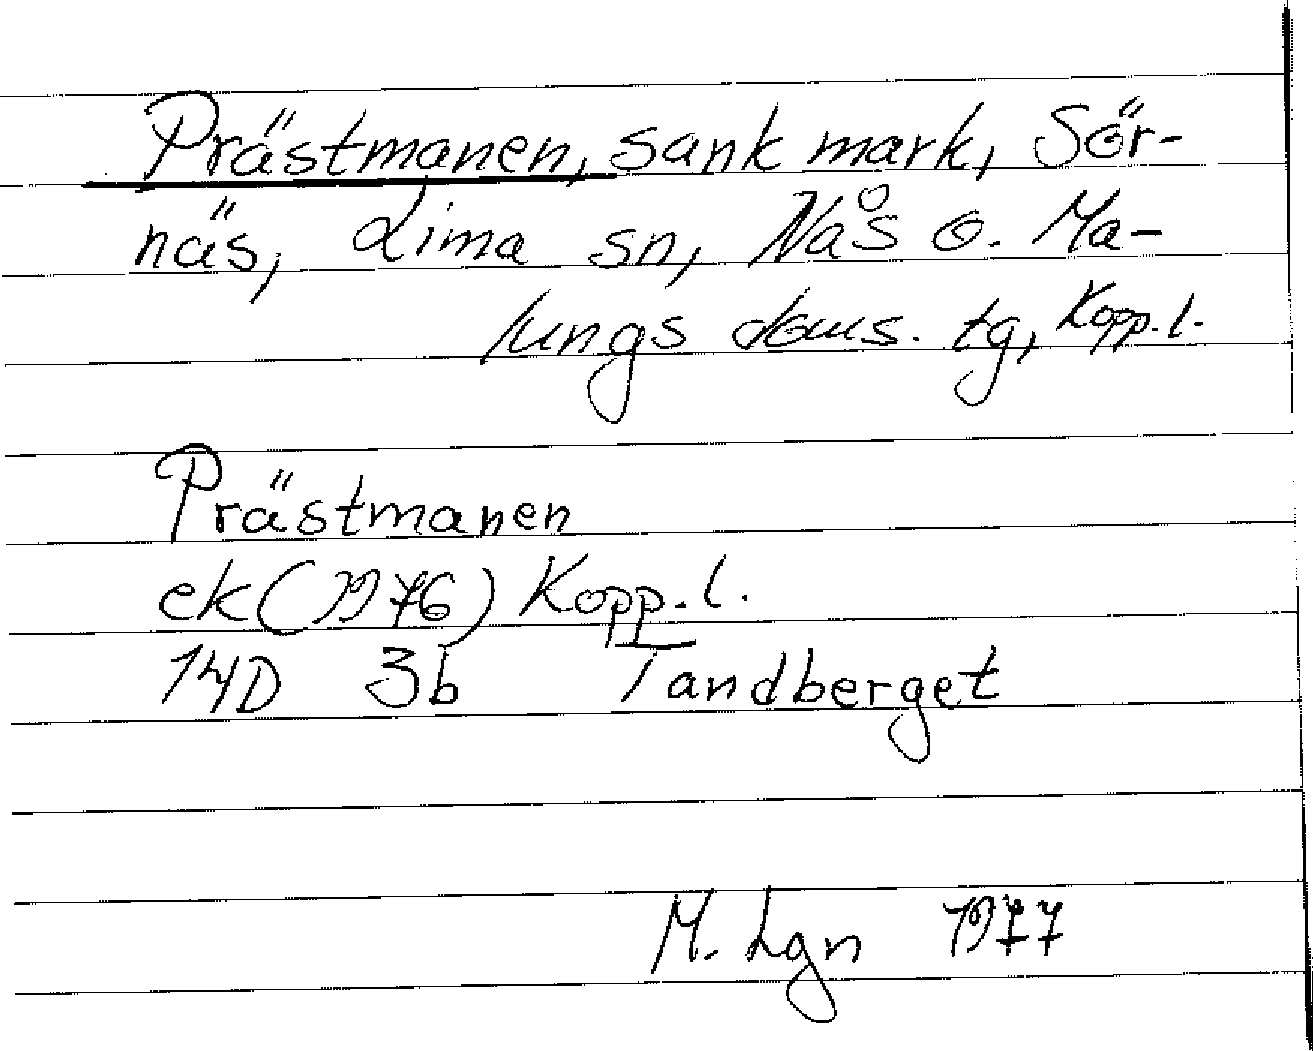 Prästmanen, sank mark, Sör-
näs, Lima sn, Nås o. Ma-
lungs doms. tg, Kopp. l.
Prästmanen
ek (1976) Kopp. l.
14D 3b Tandberget
M. Lgn 1977